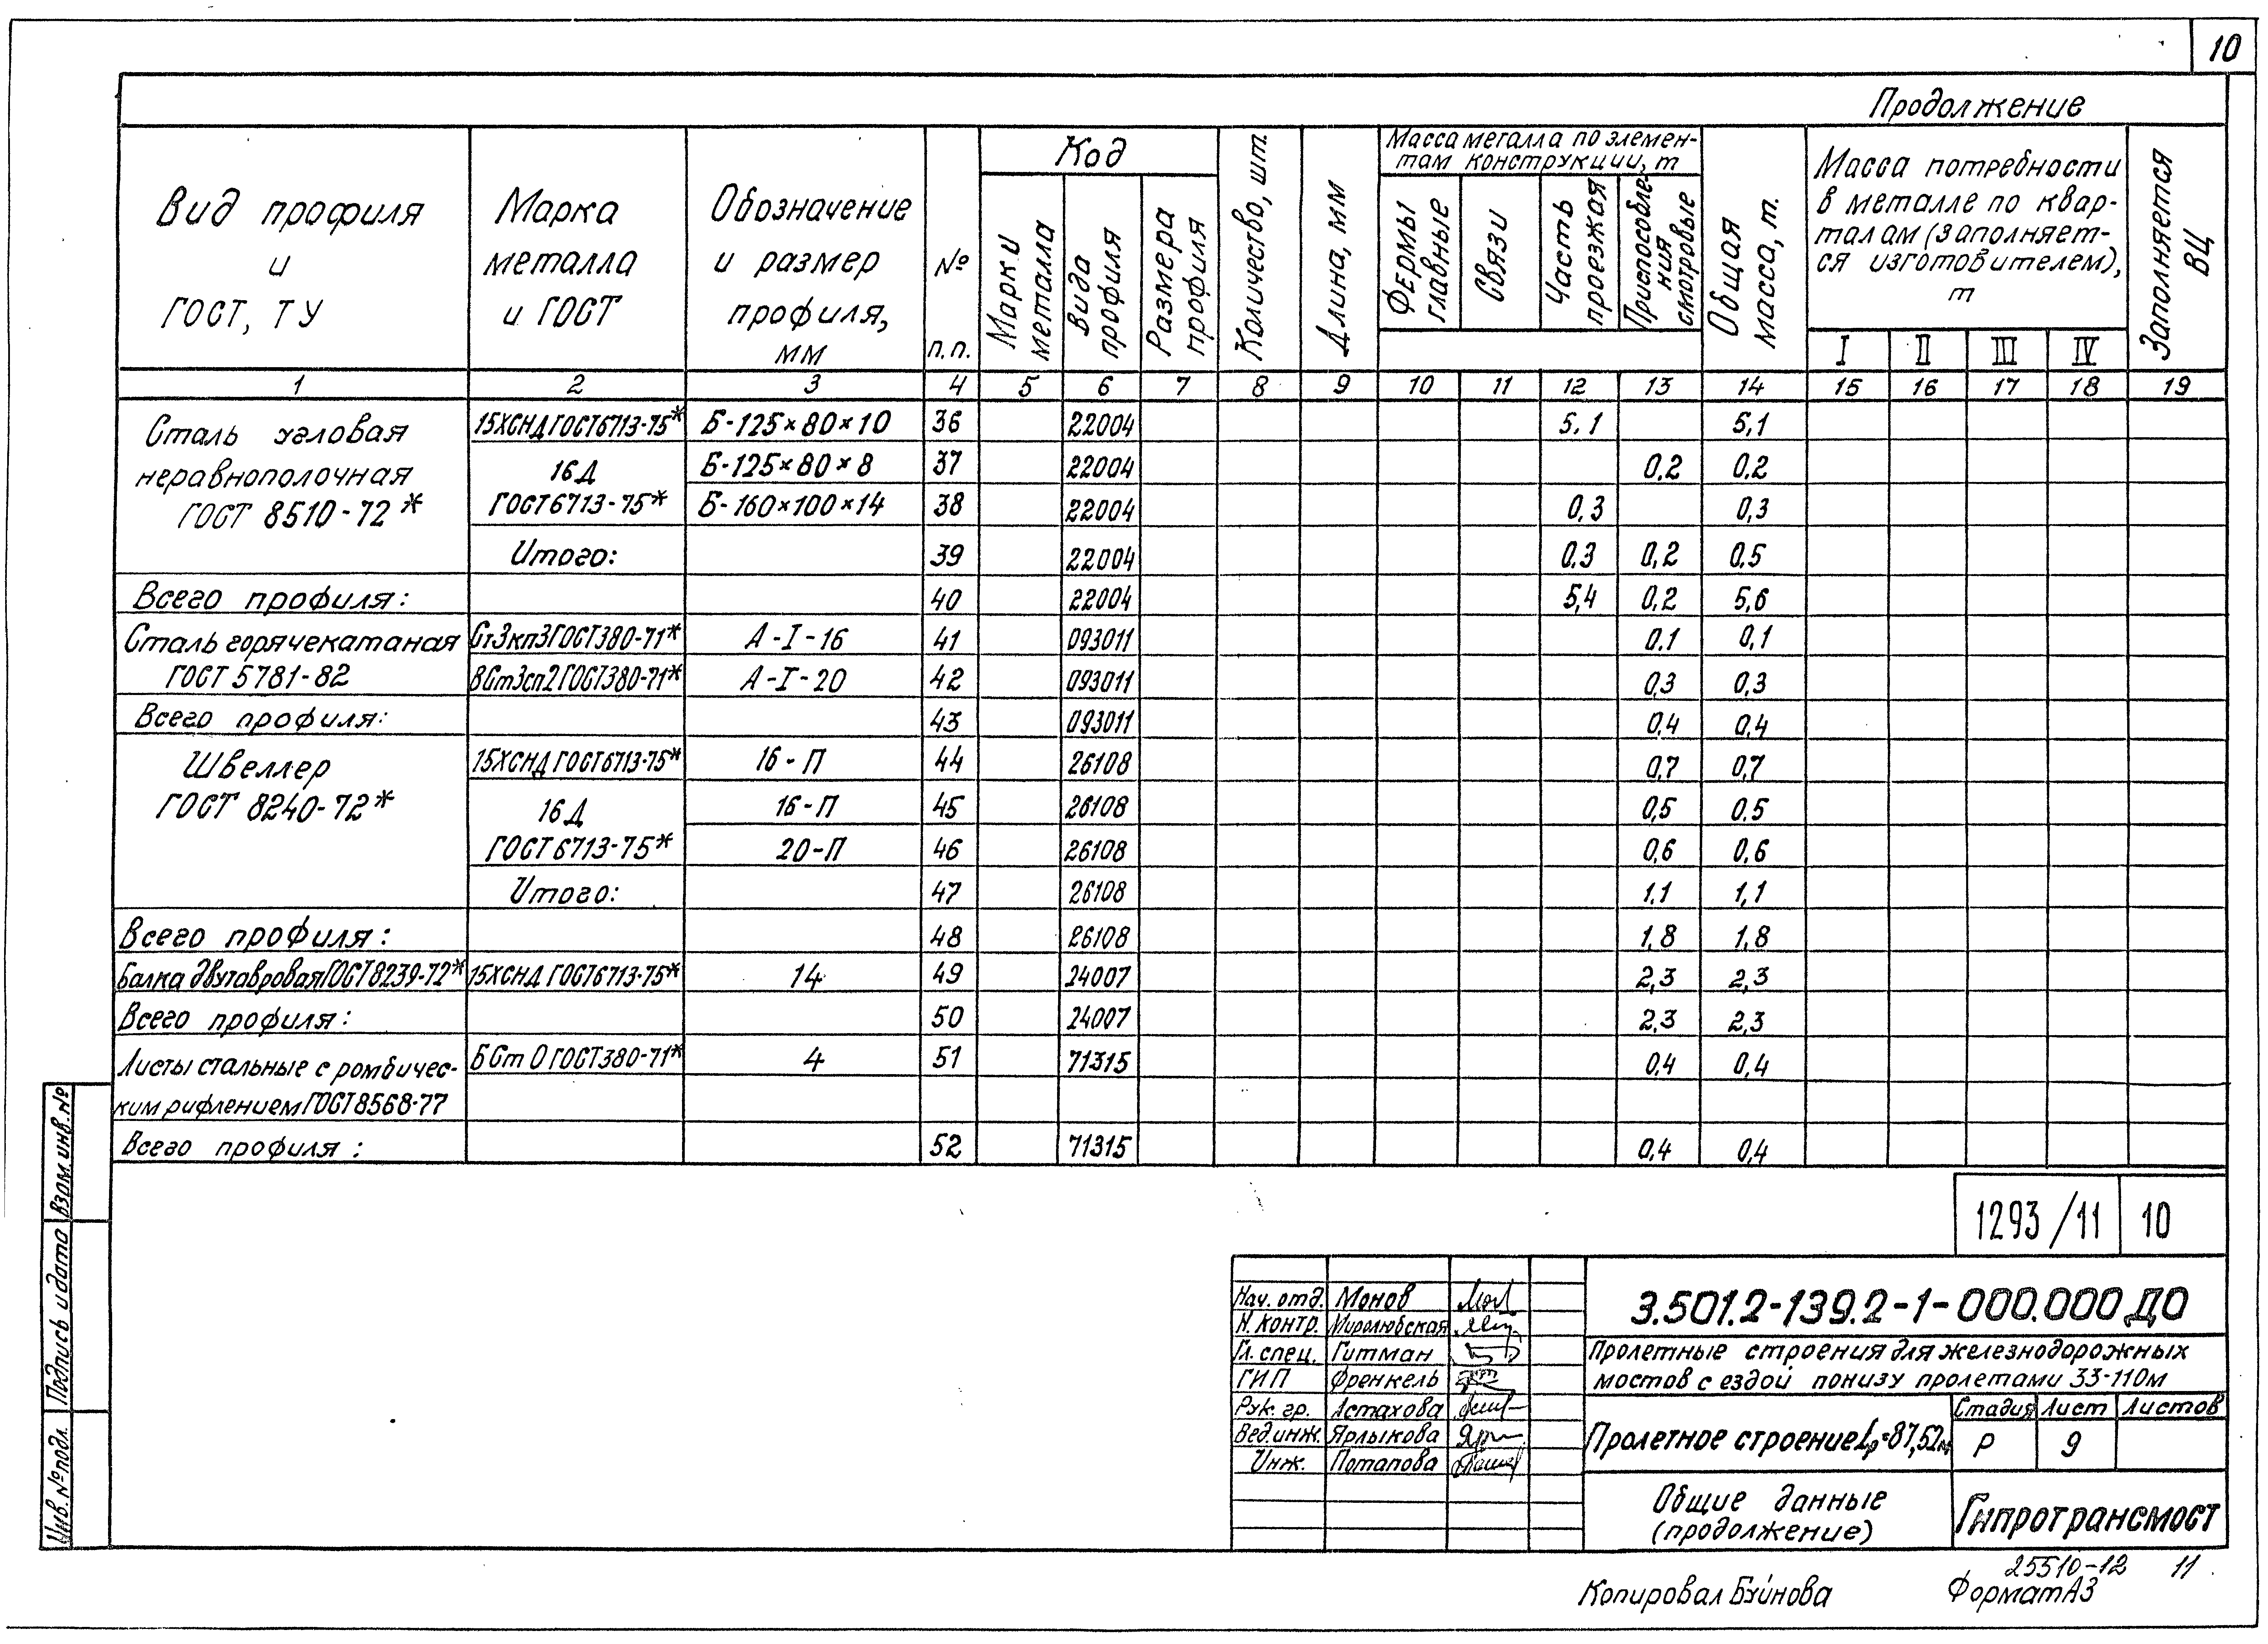 10
Продолжение
Вид профиля и ГОСТ, ТУ
Марка металла и ГОСТ
Обозначение и размер профиля, мм
№ п.п.
Код
Марки металла
Вида профиля
Размера профиля
Количество, шт.
Длина, мм
Масса металла по элемен-
там конструкции, т
Фермы главные
Связи
Часть проезжая
Приспособле-
ния смотровые
Общая масса, т.
Масса потребности
в металле по квар-
талам (заполняет-
ся изготовителем),
т
I II III IV
Заполняется ВЦ
1 2 3 4 5 6 7 8 9 10 11 12 13 14 15 16 17 18 19
Сталь угловая
неравнополочная
ГОСТ 8510-72*
15ХСНД ГОСТ6713-75* Б-125×80×10 36 22004 5.1 5,1
16Д
ГОСТ6713-75*
Б-125×80×8 37 22004 0,2 0,2
Б-160×100×14 38 22004 0,3 0,3
Итого: 39 22004 0,3 0,2 0,5
Всего профиля: 40 22004 5,4 0,2 5,6
Сталь горячекатаная
ГОСТ 5781-82
Ст3кп3ГОСТ380-71* А-I-16 41 093011 0.1 0,1
ВСт3сп2ГОСТ380-71* А-I-20 42 093011 0,3 0,3
Всего профиля: 43 093011 0,4 0,4
Швеллер
ГОСТ 8240-72*
15ХСНД ГОСТ6713-75* 16-П 44 26108 0,7 0,7
16Д
ГОСТ6713-75*
16-П 45 26108 0,5 0.5
20-П 46 26108 0,6 0,6
Итого: 47 26108 1,1 1,1
Всего профиля: 48 26108 1,8 1,8
Балка двутавровая ГОСТ8239-72* 15ХСНД ГОСТ6713-75* 14 49 24007 2,3 2,3
Всего профиля: 50 24007 2,3 2,3
Листы стальные с ромбичес-
ким рифлением ГОСТ8568-77
БСт0 ГОСТ380-71* 4 51 71315 0,4 0,4
Всего профиля: 52 71315 0,4 0,4
Взам. инв. №
Подпись и дата
Инв. № подл.
1293/11 10
Нач. отд. Монов
Н. контр. Миролюбская
Гл. спец. Гитман
ГИП Френкель
Рук. гр. Астахова
Вед. инж. Ярлыкова
Инж. Потапова
3.501.2-139.2-1-000.000 ДО
Пролетные строения для железнодорожных
мостов с ездой понизу пролетами 33-110м
Пролетное строение Lр=87,52м
Стадия Лист Листов
Р 9
Общие данные
(продолжение)
Гипротрансмост
25510-12 11
Копировал Буйнова
Формат А3